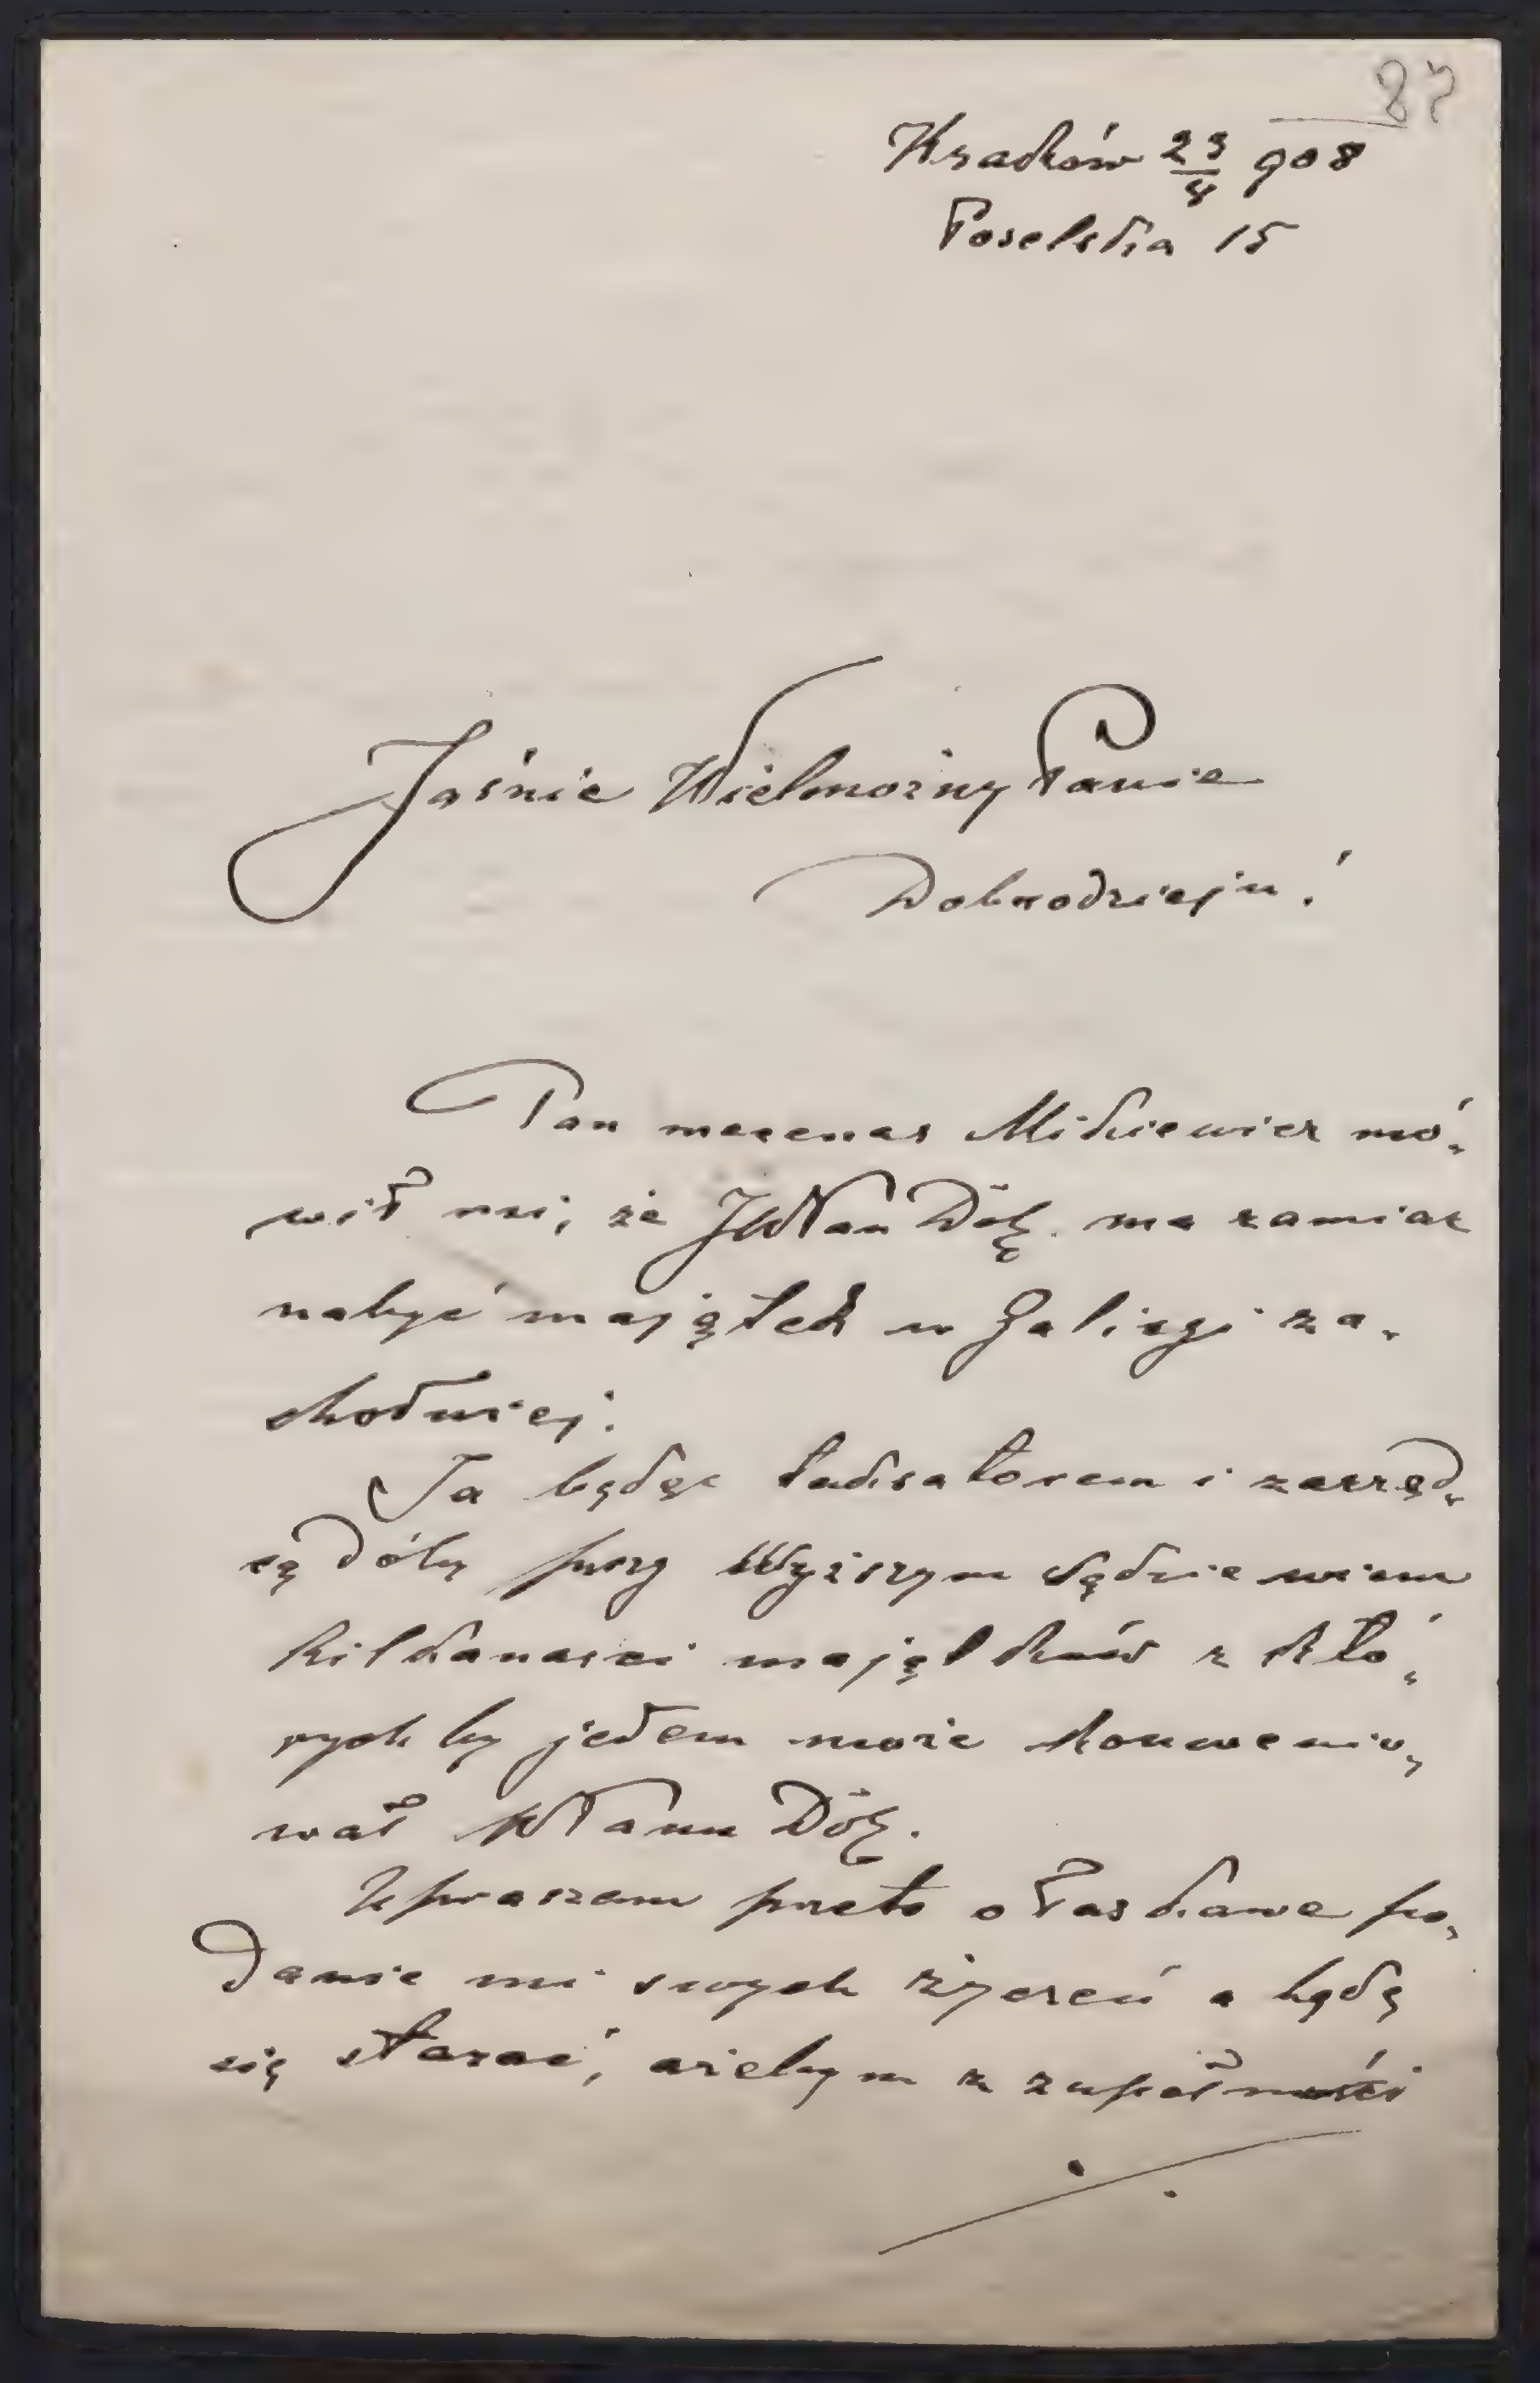 87
Kraków 23/4 908
Poselska 15
Jaśnie Wielmożny Panie
Dobrodzieju!
Pan mecenas Mikiewicz mó„
wił mi, że JWPan Dób. ma zamiar
nabyć majątek w Galicyi za„
chodniej.
Ja będąc taksatorem i zarząd„
cą dóbr przy Wyższym Sądzie wiem
kilkanaści majątków z któ„
rych by jeden może konwenio„
wał WPanu Dób.
Upraszam przeto o łaskawe po„
danie mi swych życzeń a będę
się starać, ażebym z zupełności